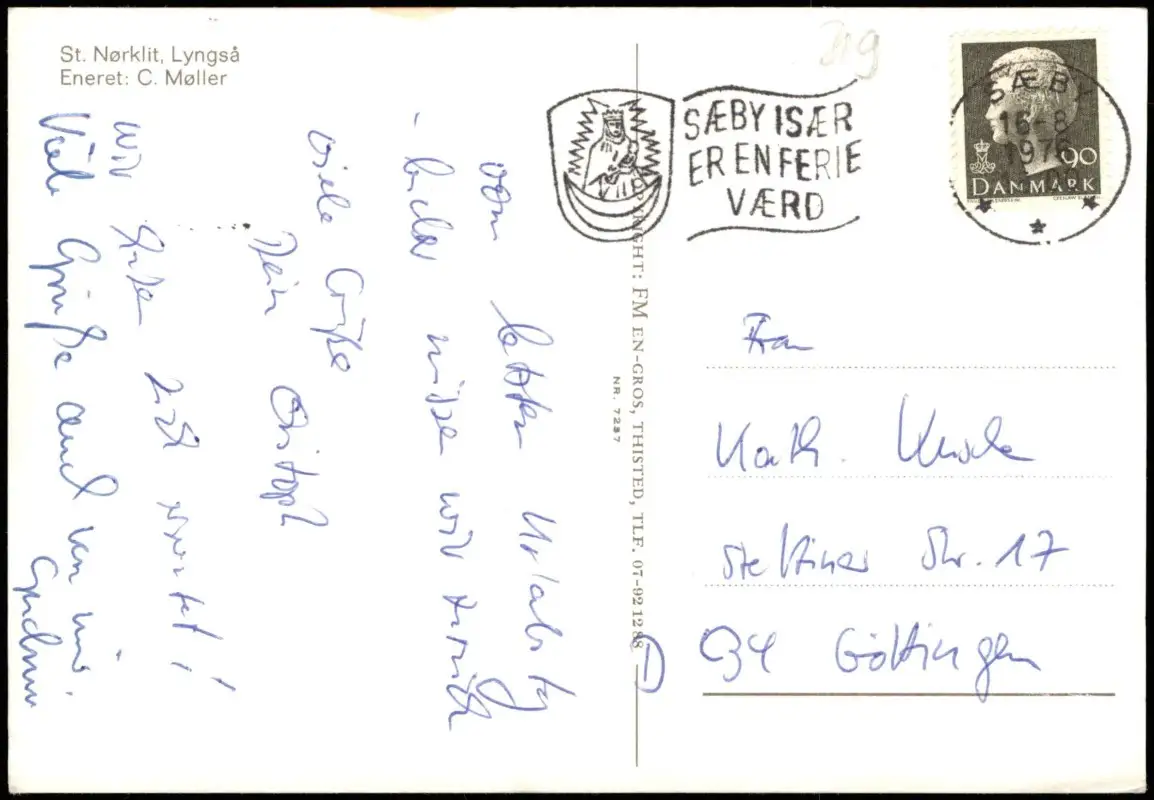 St. Nørklit, Lyngså
Eneret: C. Møller
119
SÆBY ISÆR
ER EN FERIE
VÆRD
SÆBY
16-8
1976
90
DANMARK
COPYRIGHT: FM EN-GROS, THISTED, TLF. 07-92 12 88
NR. 7237
vom letzten Urlaubstag
- leider müssen wir zurück
Viele Grüße
Dein Christoph
Wir haben
Viele Grüße auch von mir
Frau
Kath.
Stettiner Str. 17
D 34 Göttingen